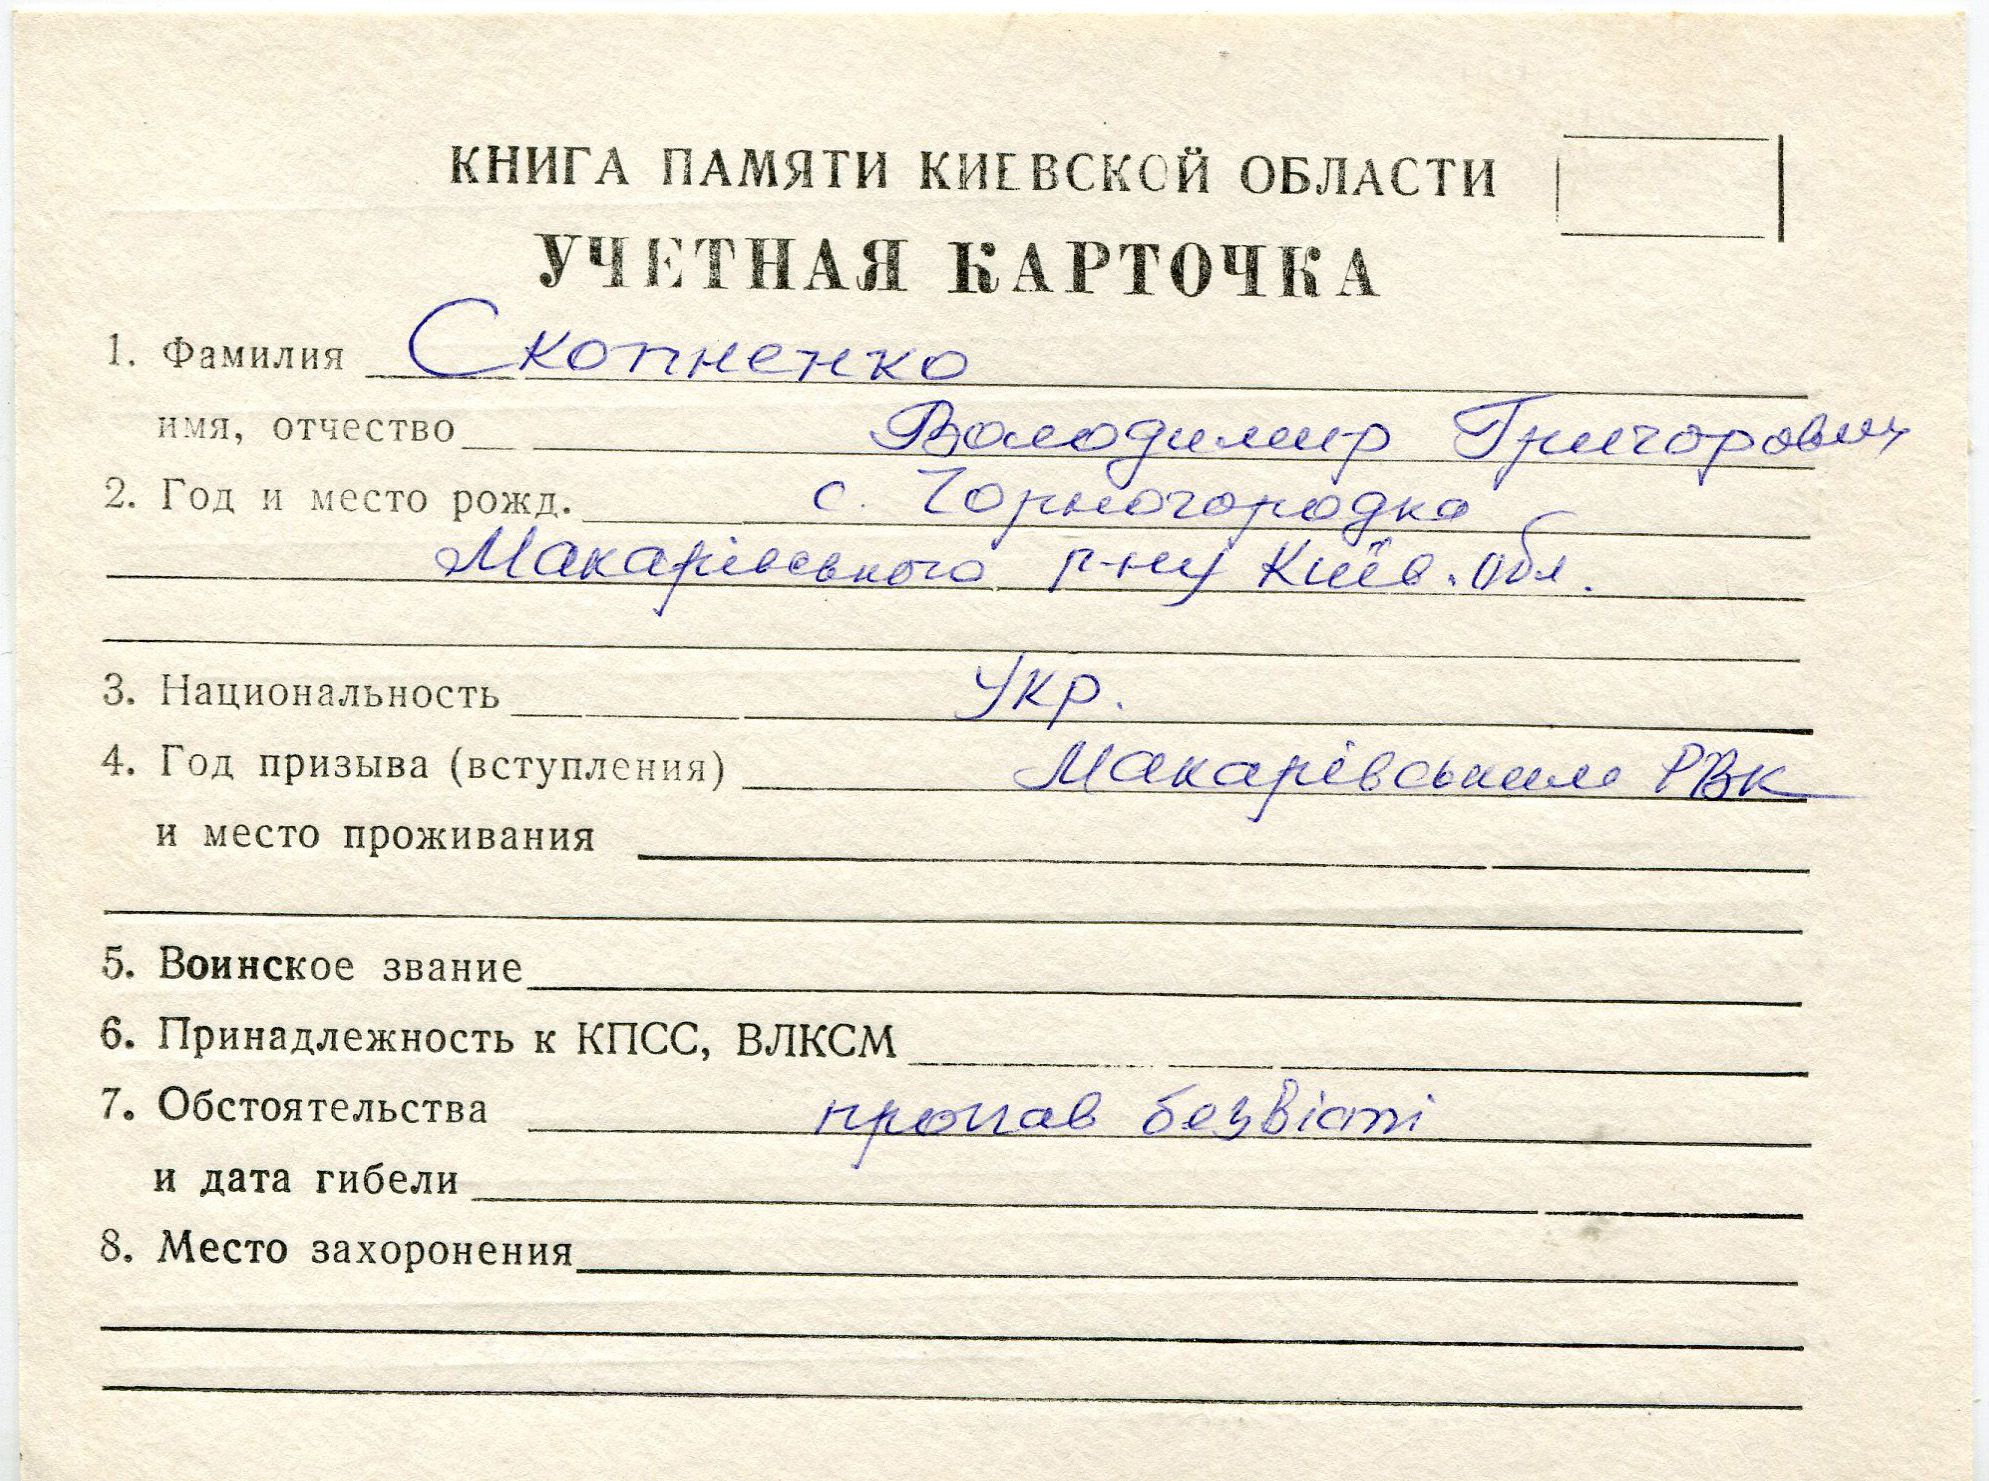 КНИГА ПАМЯТИ КИЕВСКОЙ ОБЛАСТИ
УЧЕТНАЯ КАРТОЧКА
1. Фамилия Скопненко
имя, отчество Володимир Григорович
2. Год и место рожд. с. Чорногородка
Макарівського р-ну Київ. обл.
3. Национальность Укр.
4. Год призыва (вступления) Макарівським РВК
и место проживания
5. Воинское звание
6. Принадлежность к КПСС, ВЛКСМ
7. Обстоятельства пропав безвісті
и дата гибели
8. Место захоронения